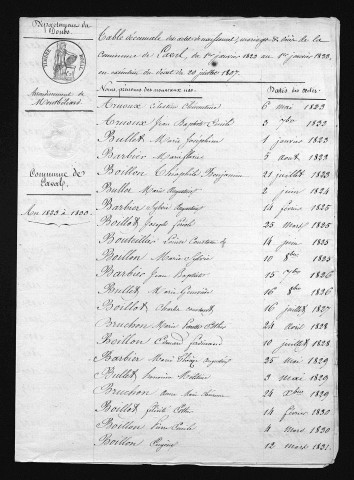 Département du
Doubs.
Arrondissement de
Montbéliard
Commune de
Laval.
An 1823 à 1833.
Table décennale des actes de naissances, mariages & décès de la
Commune de Laval, du 1er janvier 1823 au 1er janvier 1833,
en exécution du décret du 20 juillet 1807.
Noms, prénoms des nouveaux nés. Dates des actes.
Arnoux 6 mai 1823
Arnoux Jean Baptiste 3 7bre 1832
Bullet Marie Joséphine 1 janvier 1823
Barbier Marie 5 août 1823
Boillon Théophile Benjamin 21 juillet 1823
Bullet Marie Augustine 2 juin 1824
Barbier Sylvie Augustine 14 février 1825
Boillot Joseph 25 mars 1825
Bouteiller Louise 14 juin 1825
Boillon Marie Sylvie 10 8bre 1825
Barbier Jean Baptiste 15 7bre 1826
Bullet Marie Geneviève 16 8bre 1826
Boillot Charles 16 juillet 1827
Bruchon Marie 24 août 1828
Boillon Édouard Ferdinand 10 juillet 1828
Barbier Marie Augustine 25 mai 1829
Bullet 3 mai 1829
Bruchon Marie 24 Xbre 1829
Boillot 14 février 1830
Boillon 4 mars 1830
Boillon Eugène 12 mars 1831